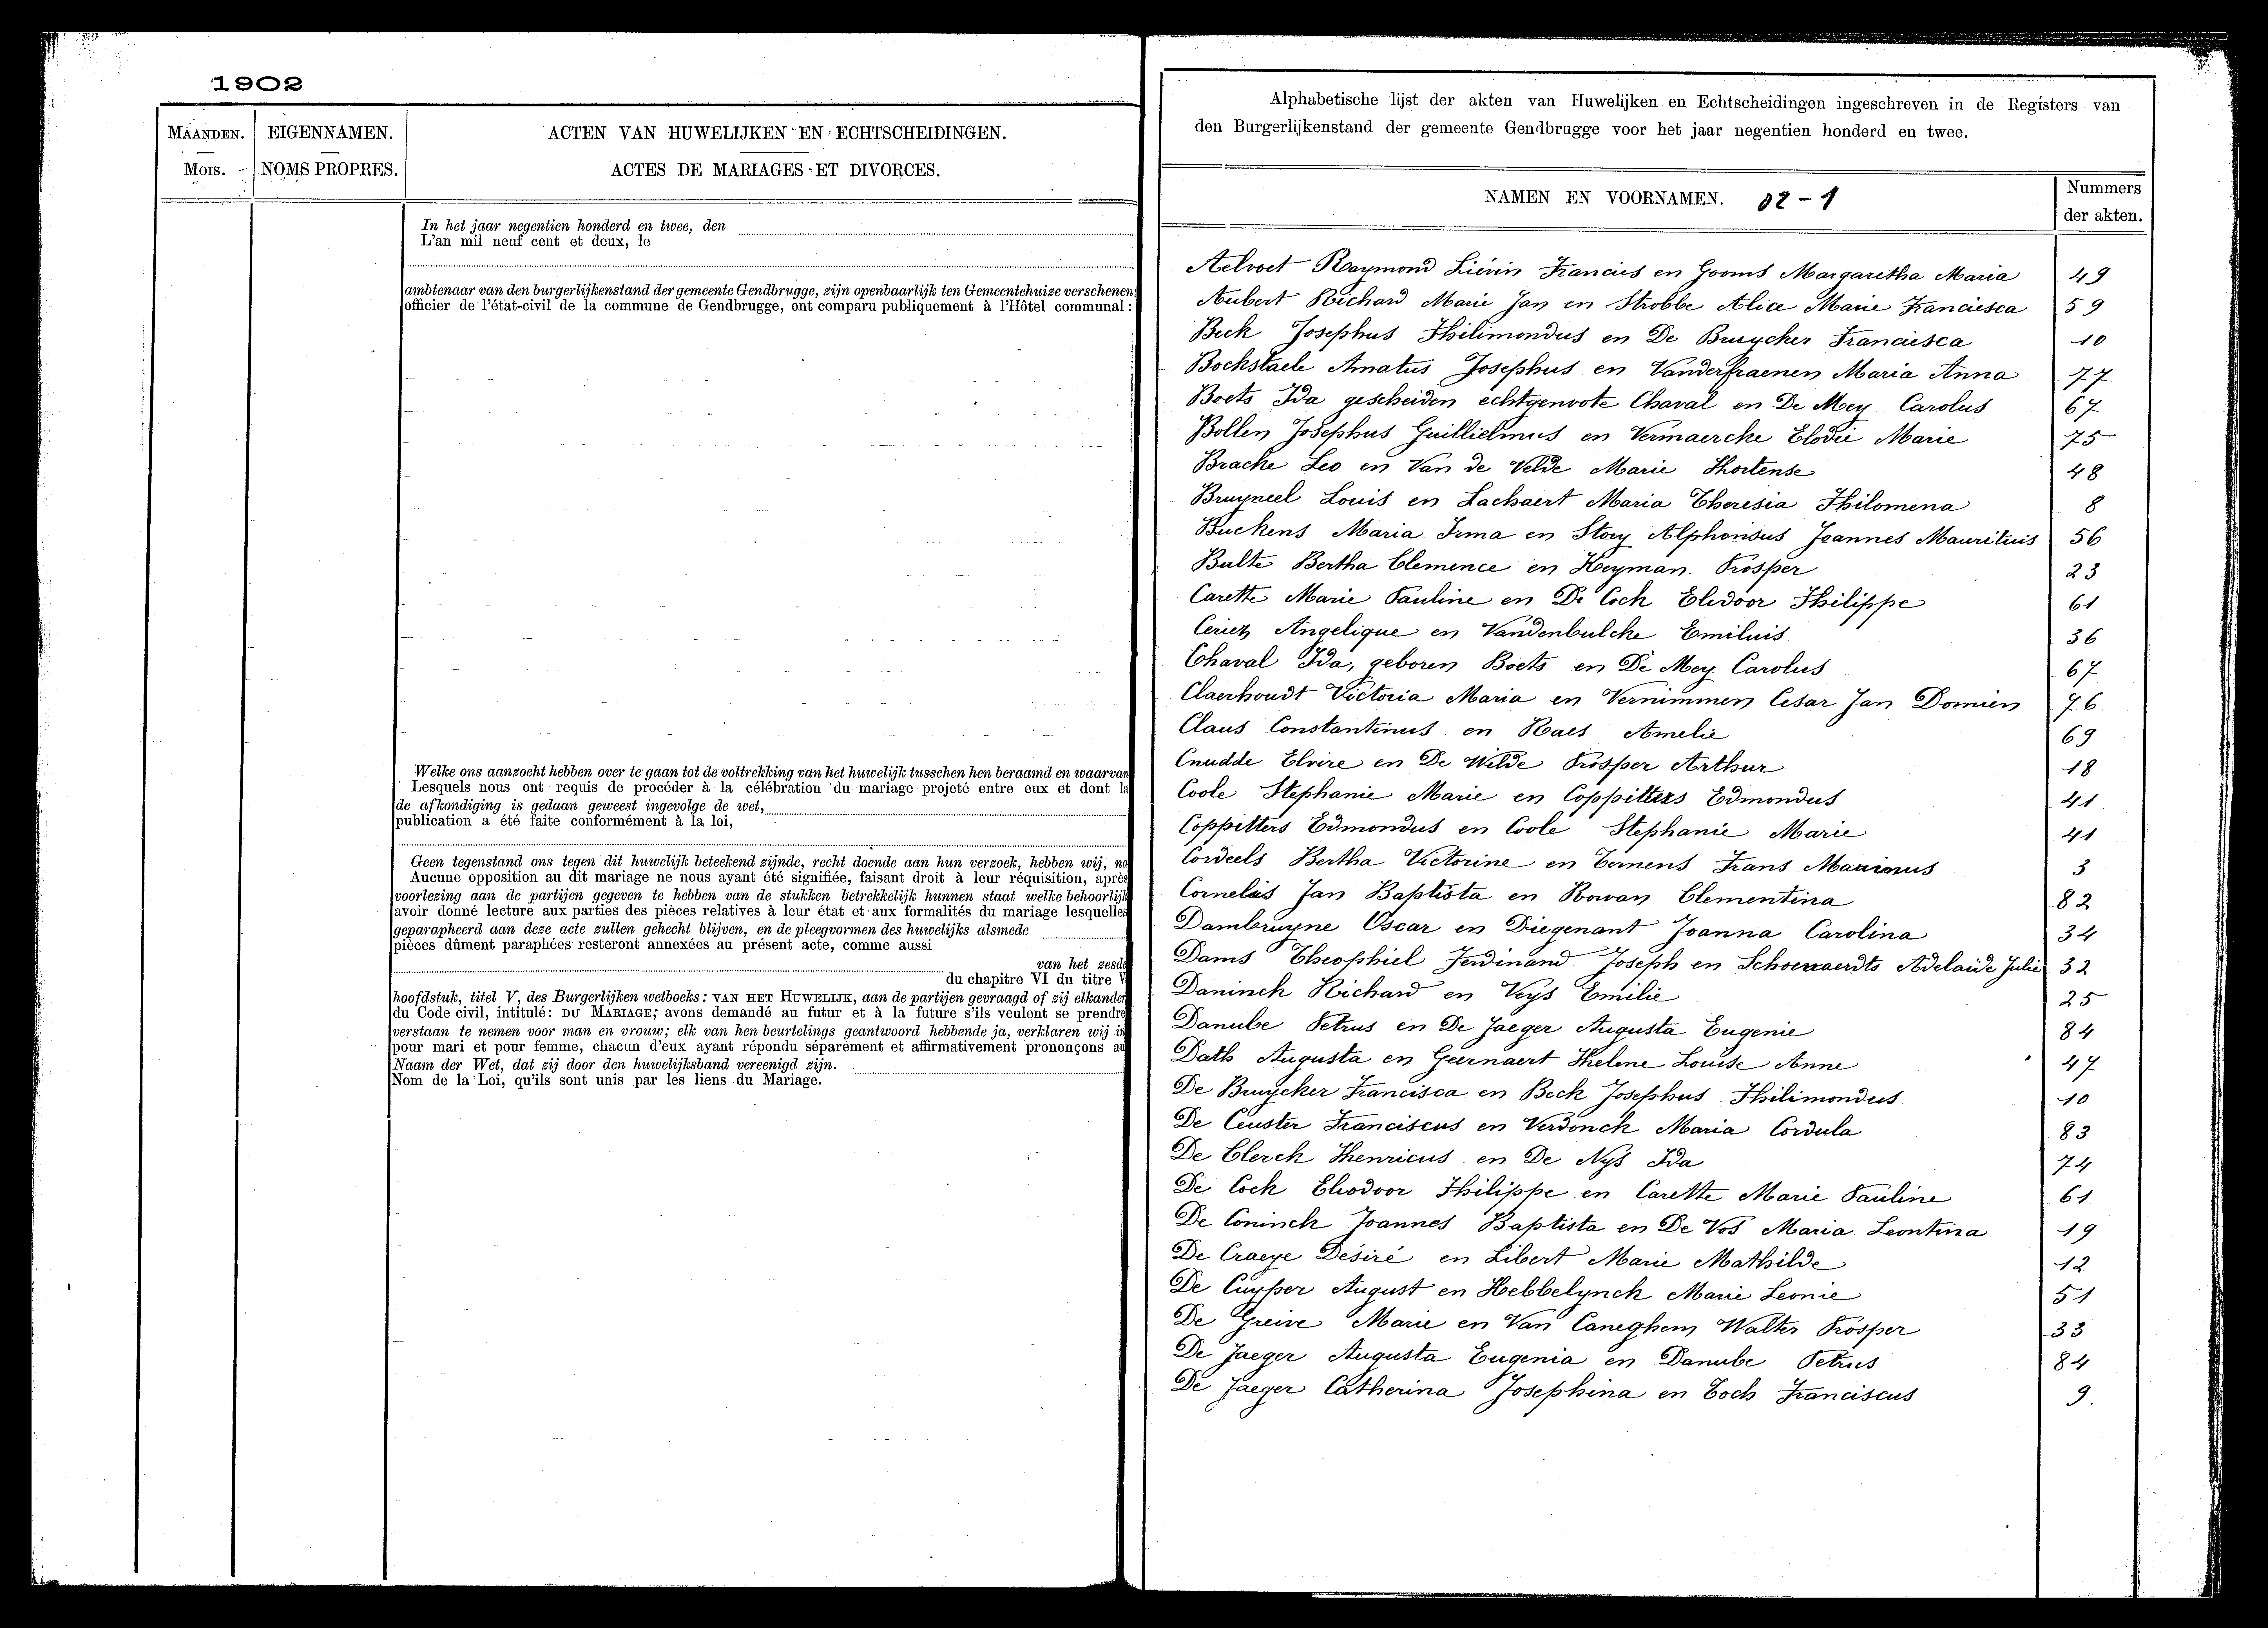 1902
MAANDEN.
MOIS.
EIGENNAMEN.
NOMS PROPRES.
ACTEN VAN HUWELIJKEN EN ECHTSCHEIDINGEN.
ACTES DE MARIAGES ET DIVORCES.
In het jaar negentien honderd en twee, den
L'an mil neuf cent et deux, le
ambtenaar van den burgerlijkenstand der gemeente Gendbrugge, zijn openbaarlijk ten Gemeentehuize verschenen:
officier de l'état-civil de la commune de Gendbrugge, ont comparu publiquement à l'Hôtel communal:
Welke ons aanzocht hebben over te gaan tot de voltrekking van het huwelijk tusschen hen beraamd en waarvan
Lesquels nous ont requis de procéder à la célébration du mariage projeté entre eux et dont la
de afkondiging is gedaan geweest ingevolge de wet,
publication a été faite conformément à la loi,
Geen tegenstand ons tegen dit huwelijk beteekend zijnde, recht doende aan hun verzoek, hebben wij, na
Aucune opposition au dit mariage ne nous ayant été signifiée, faisant droit à leur réquisition, après
voorlezing aan de partijen gegeven te hebben van de stukken betrekkelijk hunnen staat welke behoorlijk
avoir donné lecture aux parties des pièces relatives à leur état et aux formalités du mariage lesquelles
geparapheerd aan deze acte zullen gehecht blijven, en de pleegvormen des huwelijks alsmede
pièces dûment paraphées resteront annexées au présent acte, comme aussi
van het zesde
du chapitre VI du titre V
hoofdstuk, titel V, des Burgerlijken wetboeks: VAN HET HUWELIJK, aan de partijen gevraagd of zij elkander
du Code civil, intitulé: DU MARIAGE; avons demandé au futur et à la future s'ils veulent se prendre
verstaan te nemen voor man en vrouw; elk van hen beurtelings geantwoord hebbende ja, verklaren wij in
pour mari et pour femme, chacun d'eux ayant répondu séparément et affirmativement prononçons au
Naam der Wet, dat zij door den huwelijksband vereenigd zijn.
Nom de la Loi, qu'ils sont unis par les liens du Mariage.
Alphabetische lijst der akten van Huwelijken en Echtscheidingen ingeschreven in de Registers van
den Burgerlijkenstand der gemeente Gendbrugge voor het jaar negentien honderd en twee.
NAMEN EN VOORNAMEN. 02-1
Nummers
der akten.
Aelvoet Raymond Liévin Francies en Gooms Margaretha Maria 49
Aubert Richard Marie Jan en Strobbe Alice Marie Franciesca 59
Beck Josephus Philimondus en De Bruycker Franciesca 10
Bockstaele Amatus Josephus en Vanderfraenen Maria Anna 77
Boets Ida gescheiden echtgenoote Chaval en De Mey Carolus 67
Bollen Josephus Guillielmus en Vermaercke Elodie Marie 75
Bracke Leo en Van de Velde Marie Hortense 48
Bruyneel Louis en Lachaert Maria Theresia Philomena 8
Buckens Maria Irma en Story Alphonsus Joannes Mauritius 56
Bulte Bertha Clemence en Heyman Prosper 23
Carette Marie Pauline en De Cock Eliodoor Philippe 61
Ceriez Angelique en Vandenbulcke Emilius 36
Chaval Ida, geboren Boets en De Mey Carolus 67
Claerhoudt Victoria Maria en Vernimmen Cesar Jan Domien 76.
Claus Constantinus en Raes Amelie 69
Cnudde Elvire en De Wilde Prosper Arthur 18
Coole Stephanie Marie en Coppitters Edmondus 41
Coppitters Edmondus en Coole Stephanie Marie 41
Cordeels Bertha Victorine en Temens Frans 3
Cornelis Jan Baptista en Rowan Clementina 82
Dambruyne Oscar en Diegenant Joanna Carolina 34
Dams Theophiel Ferdinand Joseph en Adelaïde Julie 32
Daninck Richard en Veys Emilie 25
Danube Petrus en De Jaeger Augusta Eugenie 84
Dath Augusta en Geernaert Helene Louise Anne 47
De Bruycker Francisca en Beck Josephus Philimondus 10
De Ceuster Franciscus en Verdonck Maria Cordula 83
De Clerck Henricus en De Nys Ida 74
De Cock Eliodoor Philippe en Carette Marie Pauline 61
De Coninck Joannes Baptista en De Vos Maria Leontina 19
De Craeye Désiré en Libert Marie Mathilde 12
De Cuyper August en Hebbelynck Marie Leonie 51
De Greive Marie en Van Caneghem Walter Prosper 33
De Jaeger Augusta Eugenia en Danube Petrus 84
De Jaeger Catherina Josephina en Toch Franciscus 9.